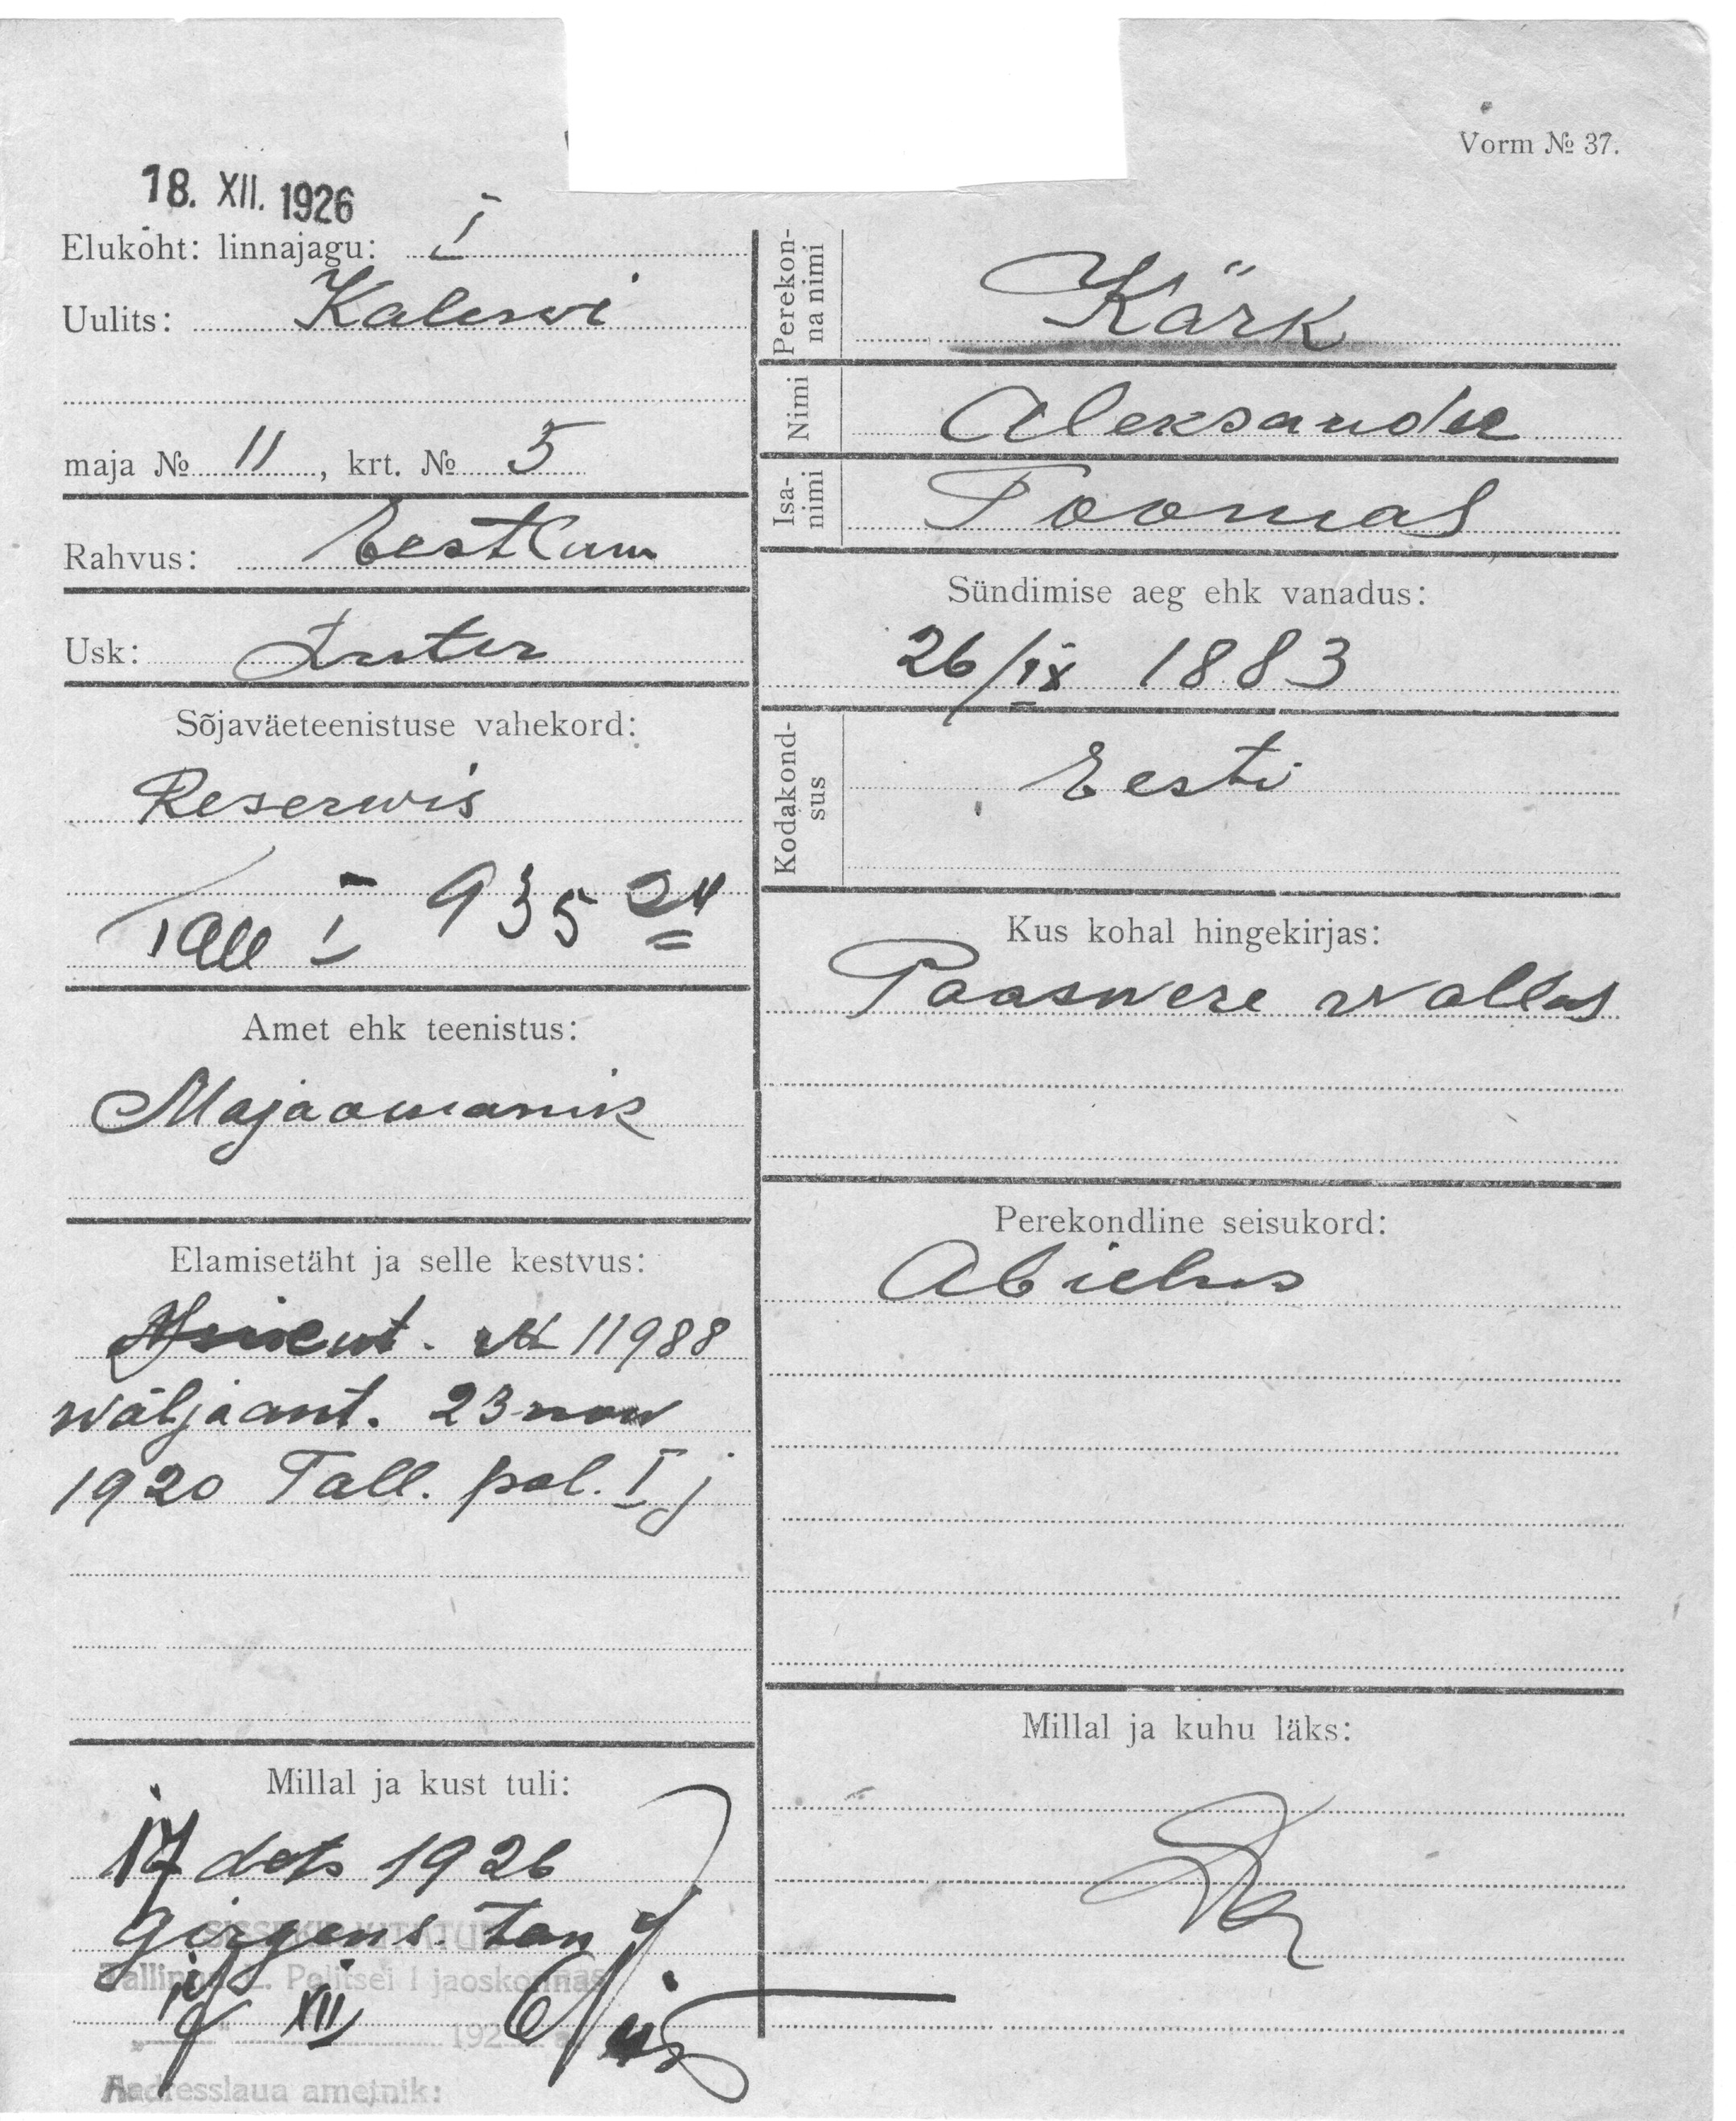 Vorm № 37.
18. XII. 1926
Elukoht: linnajagu: I
Uulits: Kalewi
maja № 11, krt. № 5
Rahvus: Eestlane
Usk: Luter
Sõjaväeteenistuse vahekord:
Reserwis
Tall I 935 24
Amet ehk teenistus:
Majaomanik
Elamisetäht ja selle kestvus:
№ 11988
wäljaant. 23 now
1920 Tall. pol. I j
Millal ja kust tuli:
17 dets 1926
Girgens. tän
SISSEKIRJUTATUD
Tallinna L. Politsei I jaoskonnas
17 XII 192
Aadresslaua ametnik:
Perekonna nimi Kärk
Nimi Aleksander
Isanimi Toomas
Sündimise aeg ehk vanadus:
26/IX 1883
Kodakondsus Eesti
Kus kohal hingekirjas:
Paaswere wallas
Perekondline seisukord:
Abielus
Millal ja kuhu läks: